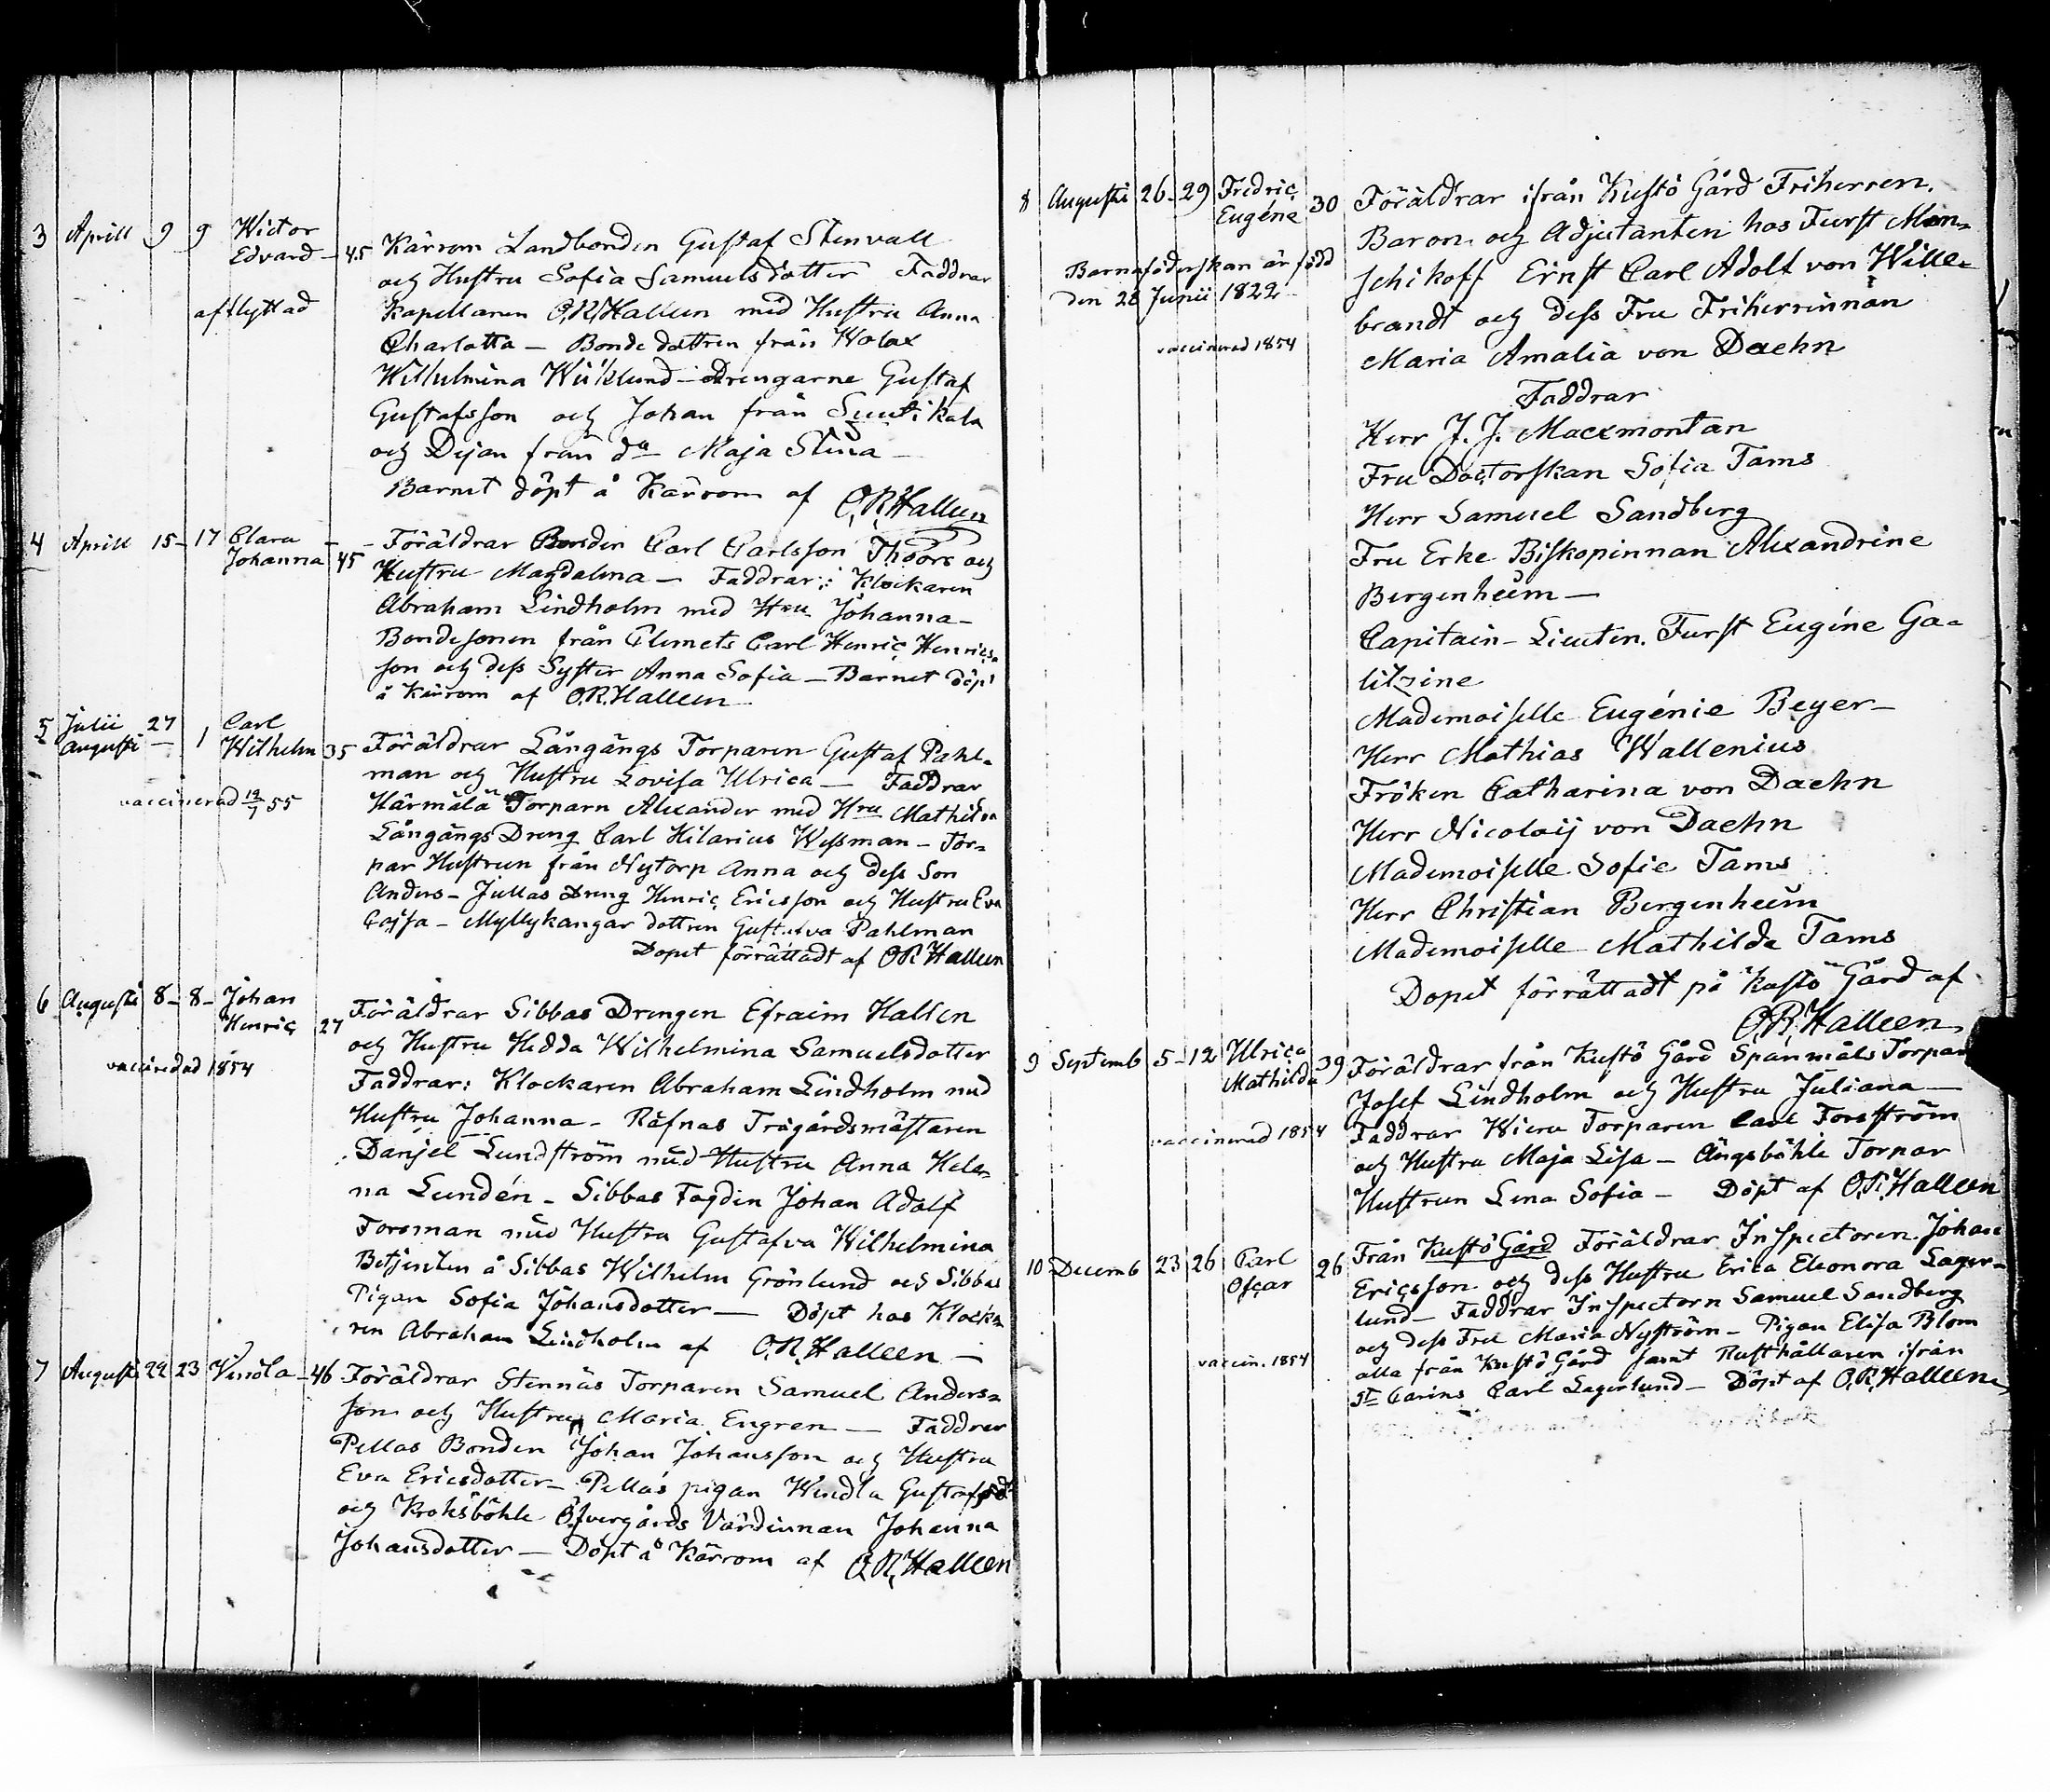 3 Aprill 9 9 Wictor
Edvard – 45 Kärrom Landbonden Gustaf Stenvall
och Hustru Sofia Samuelsdotter Faddrar
afflyttad Kapellanen O.R.Halleen med Hustru Anna
Charlotta – Bonde dottren från Wolax
Wilhelmina Wiklund – Drengarne Gustaf
Gustafsson och Johan från Suutikala
och Dejan från do Maja Stina –
Barnet döpt å Kärrom af O.R.Halleen
4 Aprill 15 – 17 Clara –
Johanna 45 – Föräldrar Bonden Carl Carlsson Thoors och
Hustru Magdalena – Faddrar: Klockaren
Abraham Lindholm med Hru Johanna –
Bondesonen från Clemets Carl Henric Henrics-
son och dess Syster Anna Sofia – Barnet döpt
å Kärrom af O.R.Halleen
5 Julii 27 Carl
Augusti – 1 Wilhelm 35 Föräldrar Långängs Torparen Gustaf Pahl-
man och Hustru Lovisa Ulrica – Faddrar
vaccinerad 12/7 55 Kärmälä Torparn Alexander med Hru Mathilda
Långängs Dreng Carl Hilarius Wessman – Tor-
par Hustrun från Nytorp Anna och dess Son
Anders – Jullas Dreng Henric Ericsson och Hustru Eva
Cajsa – Myllykangar dottren Gustafva Pahlman
Dopet förrättadt af O.R.Halleen
6 Augusti 8 – 8 – Johan
Henric 27 Föräldrar Sibbas Drengen Efraim Hallen
och Hustru Hedda Wilhelmina Samuelsdotter
vaccinerad 1854 Faddrar: Klockaren Abraham Lindholm med
Hustru Johanna – Räfnas Trägårdsmästaren
Danjel Lundström med Hustru Anna Hele-
na Lundén – Sibbas Fogden Johan Adolf
Forsman med Hustru Gustafva Wilhelmina
Betjenten å Sibbas Wilhelm Grönlund och Sibbas
Pigan Sofia Johansdotter – Döpt hos Klocka-
ren Abraham Lindholm af O.R.Halleen –
7 Augusti 22 23 Vendla – 46 Föräldrar Stennäs Torparen Samuel Anders-
son och Hustru Maria Engren – Faddrar
Pellas Bonden Johan Johansson och Hustru
Eva Ericsdotter – Pellas pigan Wendla Gustafsd:
och Kroksböhle Öfvergårds Värdinnan Johanna
Johansdotter – Döpt å Kärrom af O.R.Halleen
8 Augusti 26 – 29 Fredric
Eugéne 30 Föräldrar ifrån Kustö Gård Friherren,
Baron och Adjutanten hos Furst Men-
Barnaföderskan är född
den 28 Junii 1822 schikoff Ernst Carl Adolf von Wille-
brandt och dess Fru Friherrinnan
vaccinerad 1854 Maria Amalia von Daehn
Faddrar
Herr J. J. Macxmontan
Fru Doctorskan Sofia Tams
Herr Samuel Sandberg
Fru Erke Biskopinnan Alexandrine
Bergenheim –
Capitain – Lieuten. Furst Eugéne Ga-
litzine
Mademoiselle Eugénie Beyer –
Herr Mathias Wallenius
Fröken Catharina von Daehn
Herr Nicolaij von Daehn
Mademoiselle Sofie Tams
Herr Christian Bergenheim
Mademoiselle Mathilda Tams
Dopet förrättadt på Kustö Gård af
O.R.Halleen
9 Septemb 5 – 12 Ulrica
Mathilda 39 Föräldrar från Kustö Gård Spanmåls Torpar
Josef Lindholm och Hustru Juliana –
vaccinerad 1854 Faddrar Wiera Torparen Carl Forsström
och Hustru Maja Lisa – Ängsböhle Torpar
Hustrun Lena Sofia – Döpt af O.R.Halleen
10 Decemb 23 26 Carl
Oscar 26 Från Kustö Gård Föräldrar Inspectoren Johan
Ericsson och dess Hustru Erica Eleonora Lager-
lund – Faddrar Inspectorn Samuel Sandberg
och dess Fru Maria Nyström – Pigan Elisa Blom
vaccin. 1854 alla från Kustö Gård samt Rusthållaren ifrån
St Carins Carl Lagerlund – Döpt af O.R.Halleen